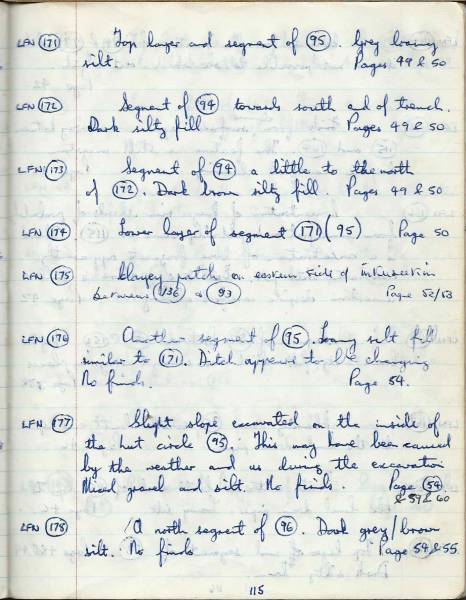 LFN (171) Top layer and segment of (95). Grey loamy
silt. Pages 49 & 50
LFN (172) Segment of (94) towards south end of trench.
Dark silty fill Pages 49 & 50
LFN (173) Segment of (94) a little to the north
of (172). Dark brown silty fill. Pages 49 & 50
LFN (174) Lower layer of segment (171) (95) Page 50
LFN (175) Clayey patch on eastern side of intersection
between (136) & (93) Page 52/53
LFN (176) Another segment of (95). Loamy silt fill
similar to (171). Ditch appears to be changing
No finds. Page 54.
LFN (177) Slight slope excavated on the inside of
the hut circle (95). This may have been caused
by the weather and us during the excavation
Mixed gravel and silt. No finds. Page (54)
& 59 & 60
LFN (178) A north segment of (96). Dark grey/brown
silt. No finds Page 54 & 55.
115